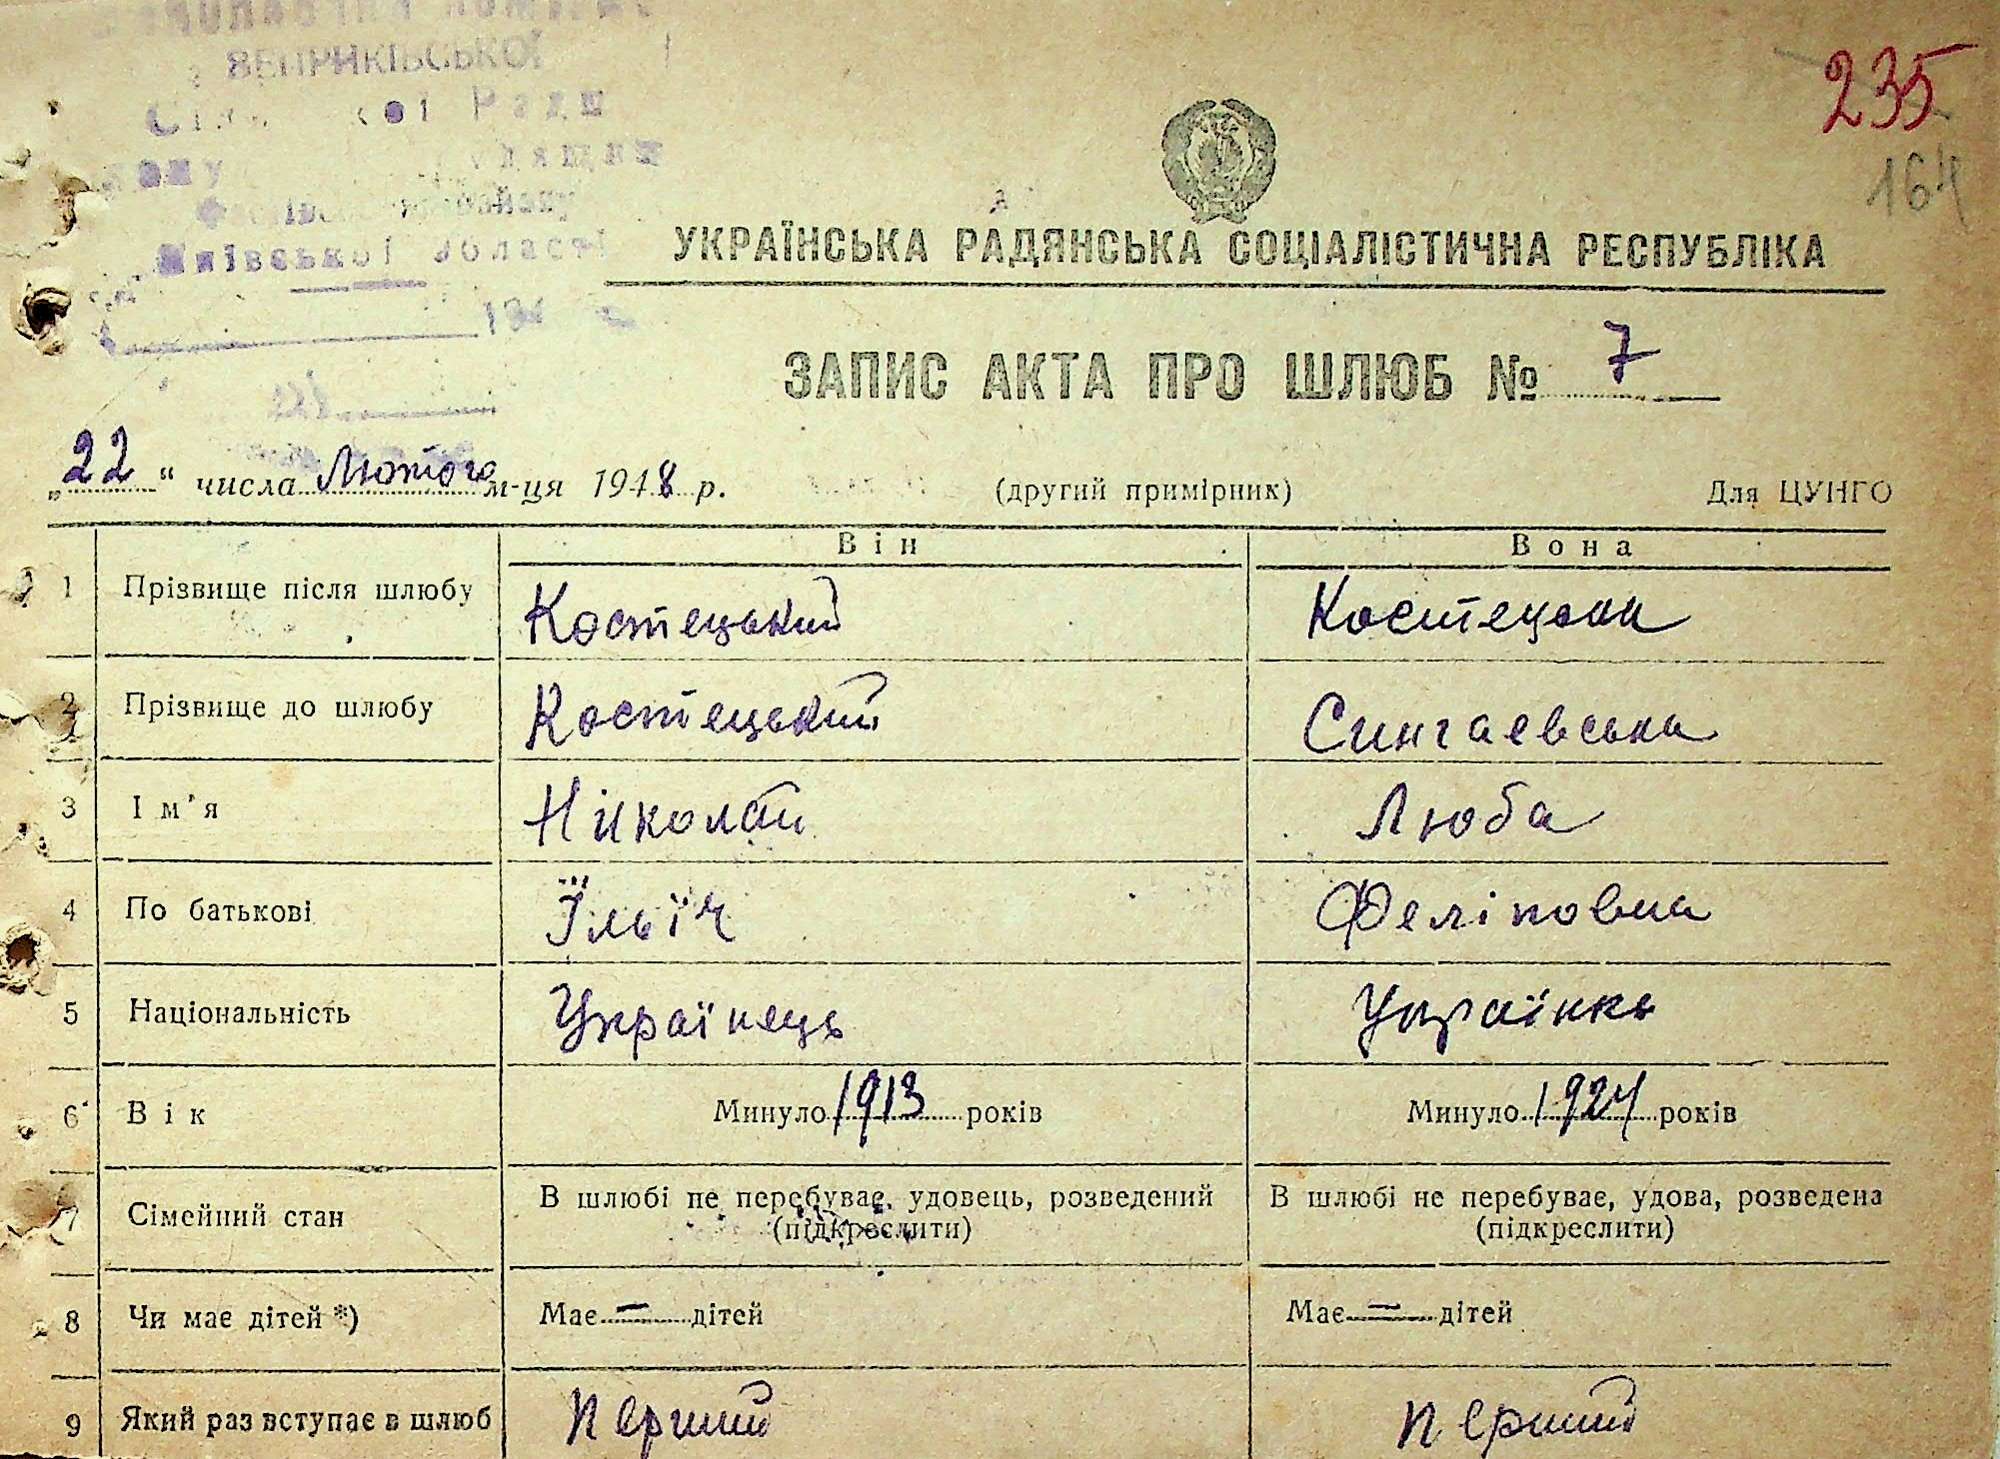 ВЕПРИКІВСЬКОЇ
Ради
Київської Області
235
164
УКРАЇНСЬКА РАДЯНСЬКА СОЦІАЛІСТИЧНА РЕСПУБЛІКА
ЗАПИС АКТА ПРО ШЛЮБ № 7
„22“ числа Лютого м-ця 1948 р. (другий примірник) Для ЦУНГО
Він Вона
1 Прізвище після шлюбу Костецький Костецька
2 Прізвище до шлюбу Костецький Сингаевська
3 Ім'я Ніколай Люба
4 По батькові Їльїч Феліповна
5 Національність Українець Українка
6 Вік Минуло 1913 років Минуло 1924 років
7 Сімейний стан В шлюбі не перебуває, удовець, розведений (підкреслити) В шлюбі не перебуває, удова, розведена (підкреслити)
8 Чи має дітей *) Має — дітей Має — дітей
9 Який раз вступає в шлюб Перший Перший